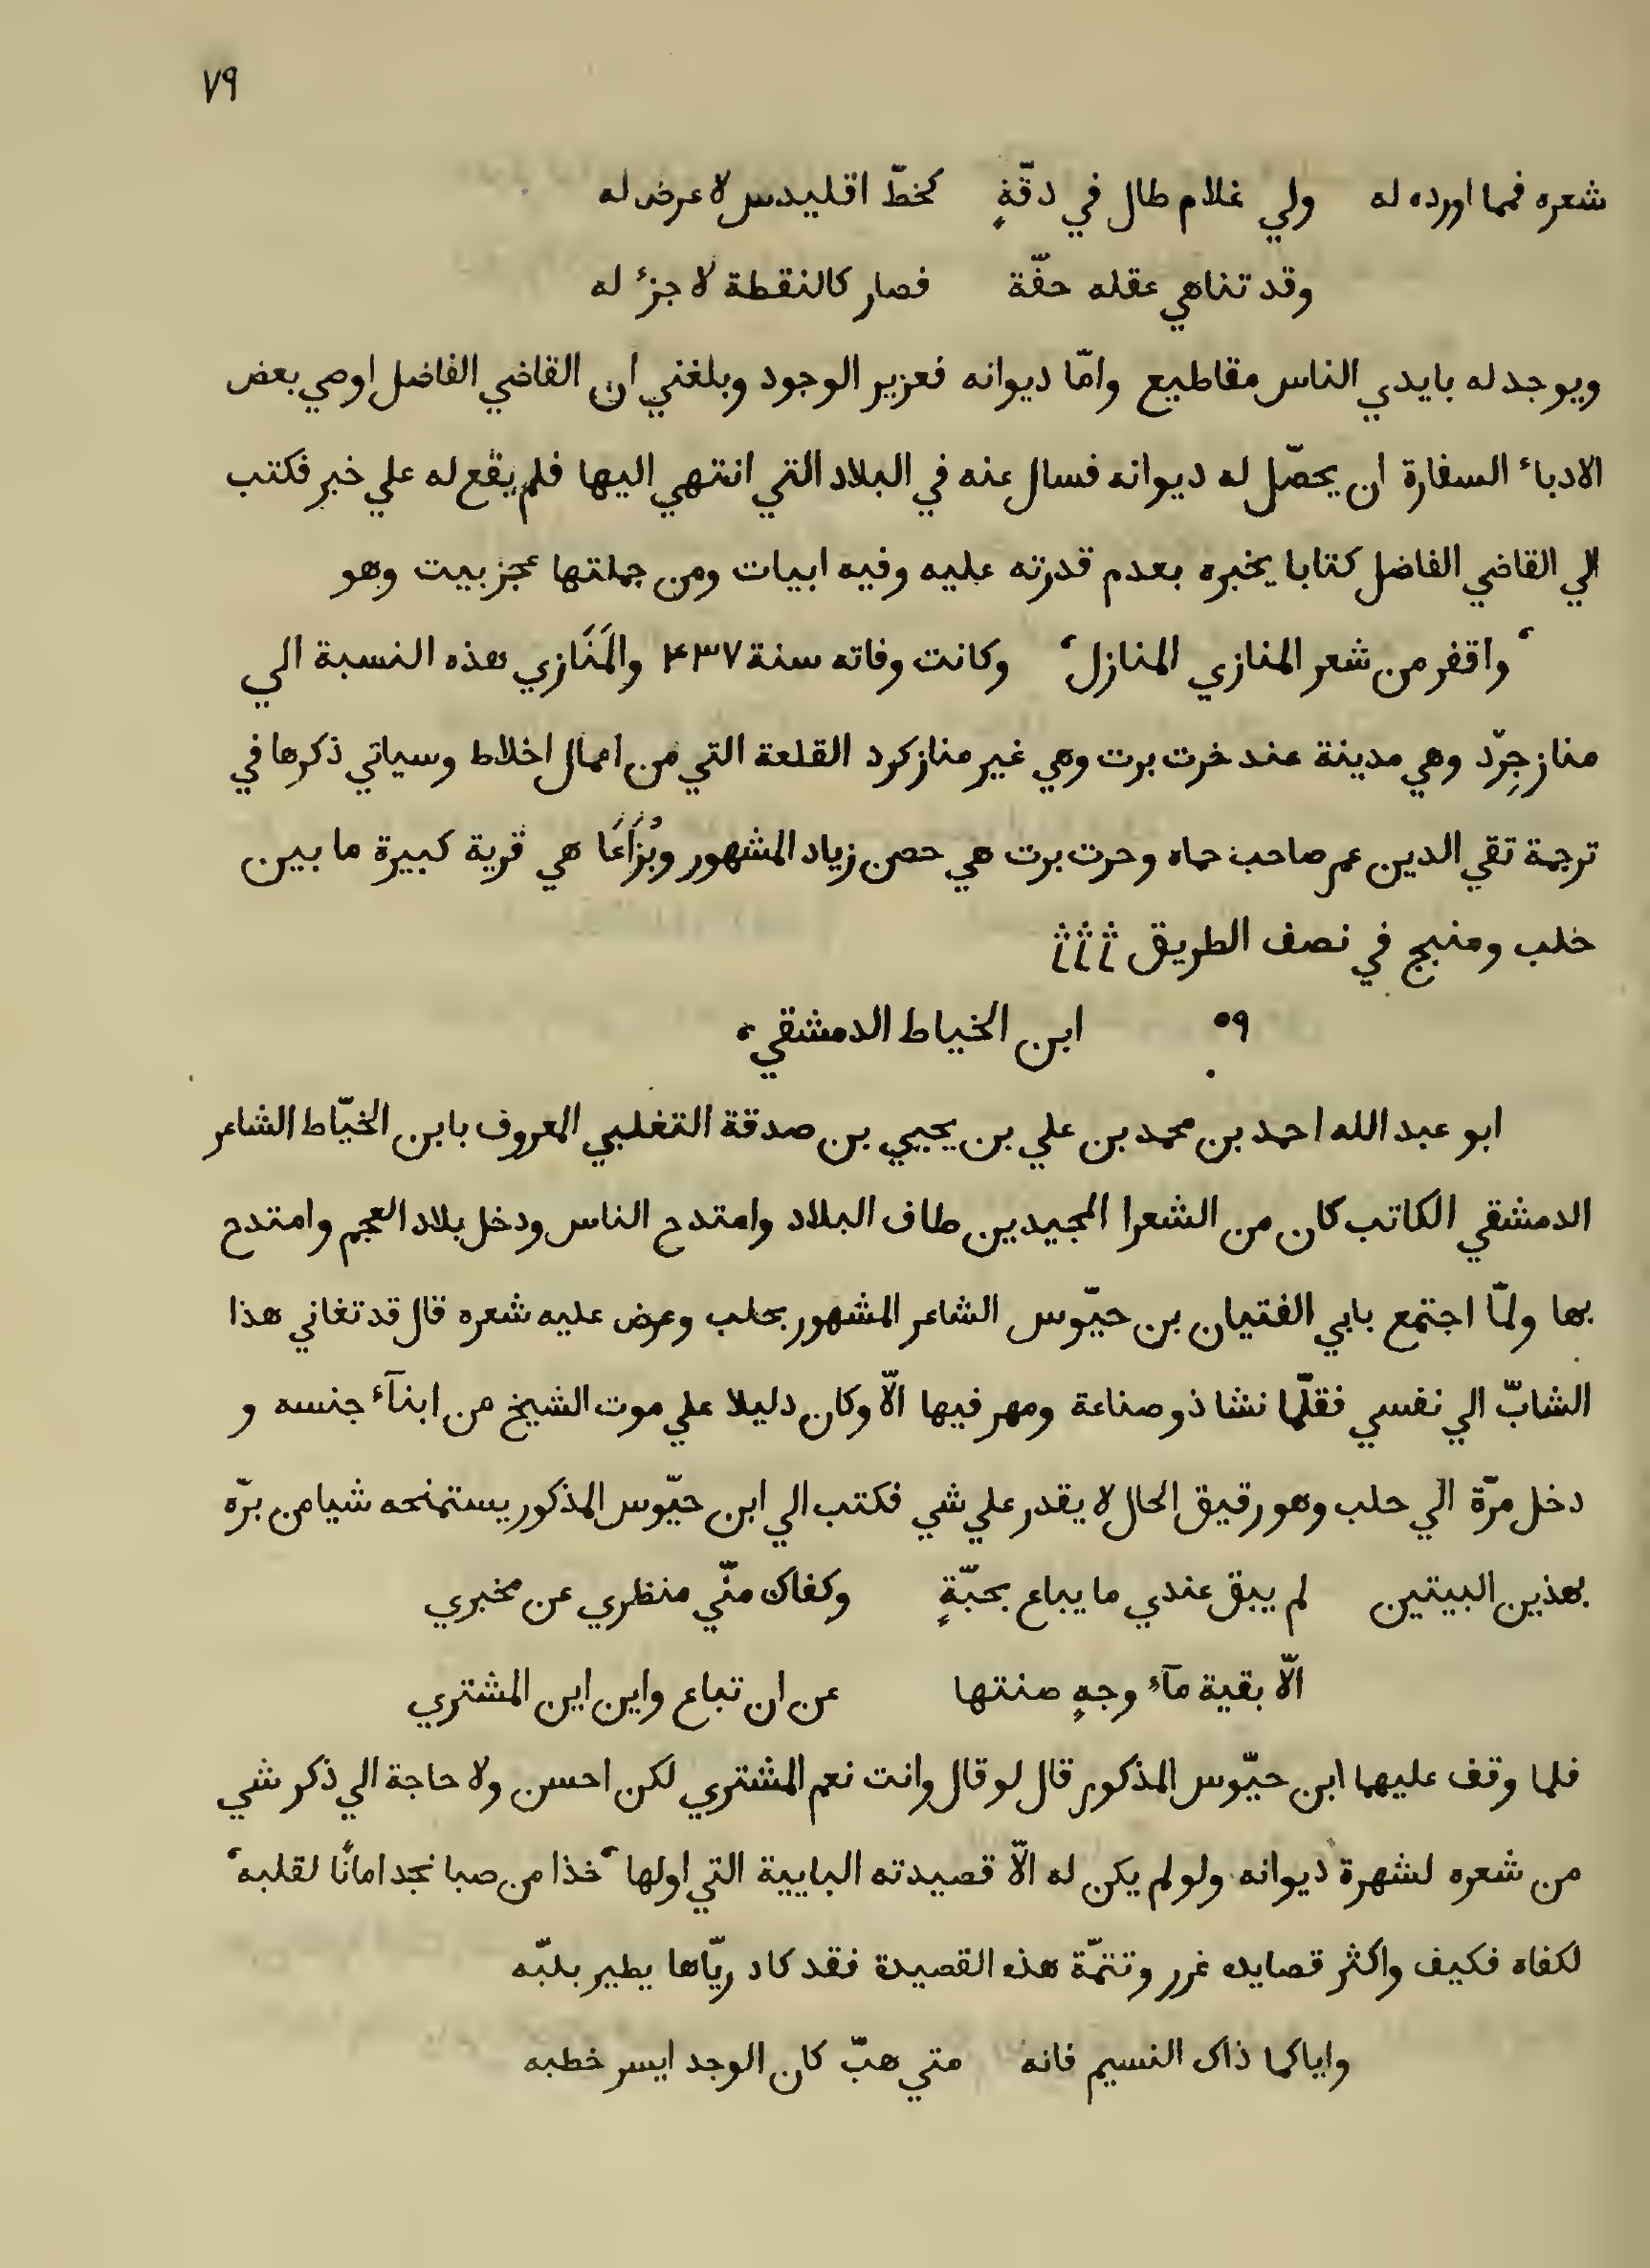 ٧٩
شعره فمما اورده له ولي غلام طال في دقّةٍ كخطّ اقليدس لا عرض له
وقد تناهي عقله حفّة فصار كالنقطة لا جزء له
ويوجد له بايدي الناس مقاطيع وامّا ديوانه فعزير الوجود وبلغني ان القاضي الفاضل اوصي بعض
الادباء السفارة ان يحصّل له ديوانه فسال عنه في البلاد التي انتهي اليها فلم يقع له علي خبر فكتب
الي القاضي الفاضل كتابا يخبره بعدم قدرته عليه وفيه ابيات ومن جملتها عجز بيت وهو
واقفر من شعر المنازي المنازل وكانت وفاته سنة ٤٣٧ والمَنَازي هذه النسبة الي
مناز جِرّد وهي مدينة عند خرت برت وهي غير مناز كرد القلعة التي من اعمال اخلاط وسياتي ذكرها في
ترجمة تقي الدين عمر صاحب حماه وحرت برت هي حصن زياد المشهور وبُزَاعَا هي قرية كبيرة ما بين
خلب ومنبج في نصف الطريق
٥٩ ابن الخياط الدمشقي
ابو عبد الله احمد بن محمد بن علي بن يحيي بن صدقة التغلبي المعروف بابن الخيّاط الشاعر
الدمشقي الكاتب كان من الشعرا المجيدين طاف البلاد وامتدح الناس ودخل بلاد العجم وامتدح
بها ولمّا اجتمع بابي الفتيان بن حيّوس الشاعر المشهور بحلب وعرض عليه شعره قال قد تغاني هذا
الشابّ الي نفسي فقلّما نشا ذو صناعة ومهر فيها الّا وكان دليلا علي موت الشيخ من ابنآء جنسه و
دخل مرّة الي حلب وهو رقيق الحال لا يقدر علي شي فكتب الي ابن حيّوس المذكور يستمنحه شيا من برّه
بهذين البيتين لم يبق عندي ما يباع بحبّةٍ وكفاك منّي منظري عن مخبري
الّا بقية مآء وجهٍ صنتها عن ان تباع واين اين المشتري
فلما وقف عليهما ابن حيّوس المذكور قال لو قال وانت نعم المشتري لكن احسن ولا حاجة الي ذكر شي
من شعره لشهرة ديوانه ولو لم يكن له الّا قصيدته البايية التي اولها خذا من صبا نجد امانًا لقلبه
لكفاه فكيف واكثر قصايده غرر وتتمّة هذه القصيدة فقد كاد ريّاها يطير بلبّه
واياكما ذاك النسيم فانه متي هبّ كان الوجد ايسر خطبه